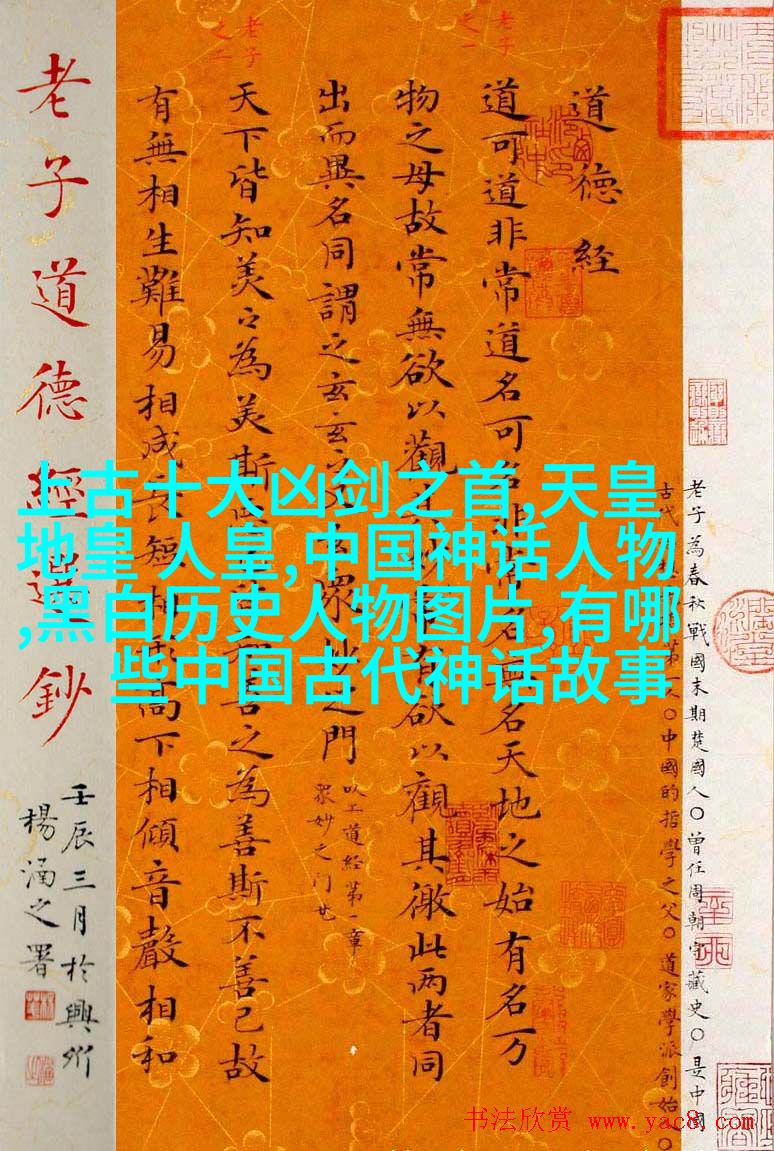 上古十大凶剑之首,天皇
地皇 人皇,中国神话人物
,黑白历史人物图片,有哪
些中国古代神话故事
道德經
老子
之一
道可道非常道名可名非常名無名天地之始有名万
物之母故常無欲以觀其妙常有欲以觀其徼此两者同
出而異名同謂之玄玄之又玄眾妙之門
以上道經第一章
眾妙之门
老子
之二
天下皆知美之為美斯惡已皆知善之為善斯不善已故
有無相生難易相成長短相形高下相傾音聲相和
老子為春秋戰國末期楚國人〇曾任周朝守藏史〇是中國
古代 第一人〇中國的哲學之父〇道家學派創始〇
老子道德經選鈔
壬辰三月於興
楊涵之署
书法欣赏 www.yac8.com